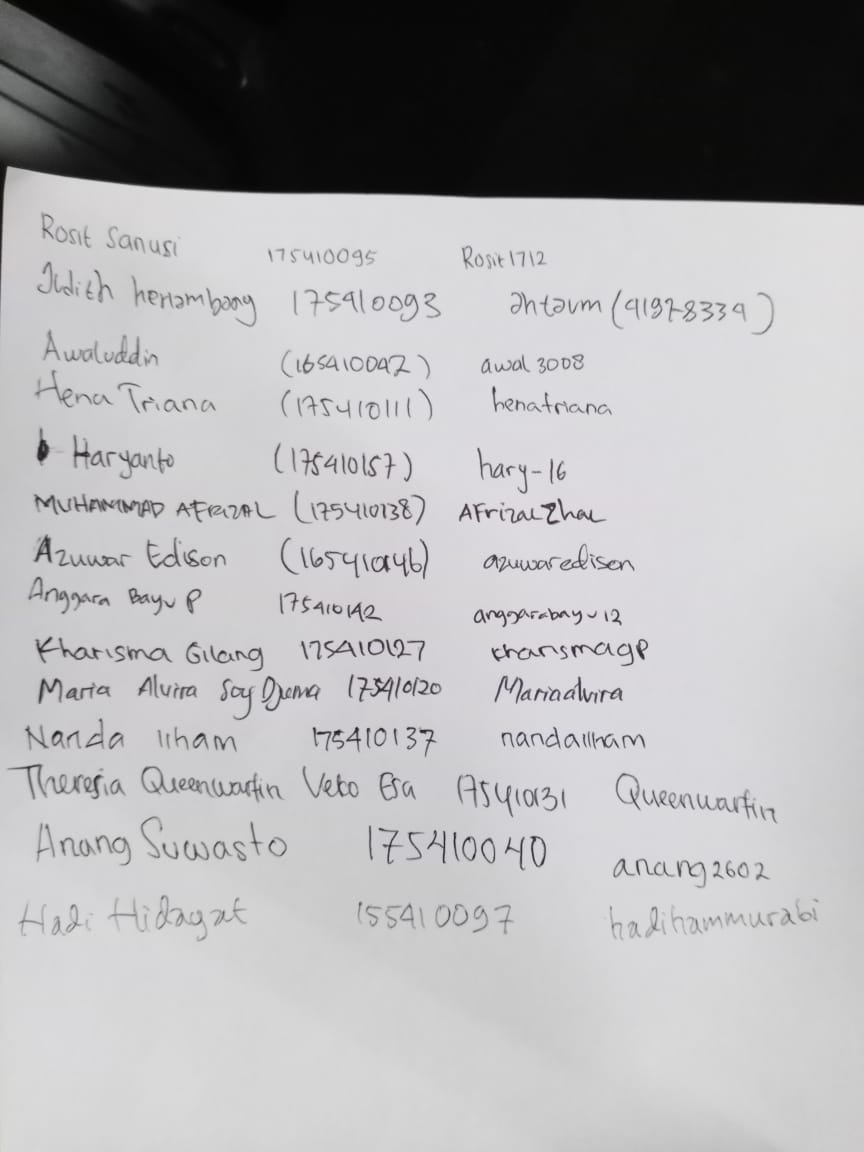 Rosit Sanusi 175410095 Rosit1712
Judith heriambang 175410093 ahtavm (91978339)
Awaluddin (165410042) awal3008
Hena Triana (175410111) henatriana
Haryanto (175410157) hary-16
MUHAMMAD AFRIZAL (175410138) AFrizalZhal
Azuwar Edison (165410146) azuwaredison
Anggara Bayu P 175410142 anggarabayu12
Kharisma Gilang 175410127 kharismagp
Maria Alvira Soy Djema 175410120 Mariaalvira
Nanda ilham 175410137 nandailham
Theresia Queenwartin Veto Esa 175410131 Queenwartin
Anang Suwasto 175410040 anang2602
Hadi Hidayat 155410097 hadihammurabi